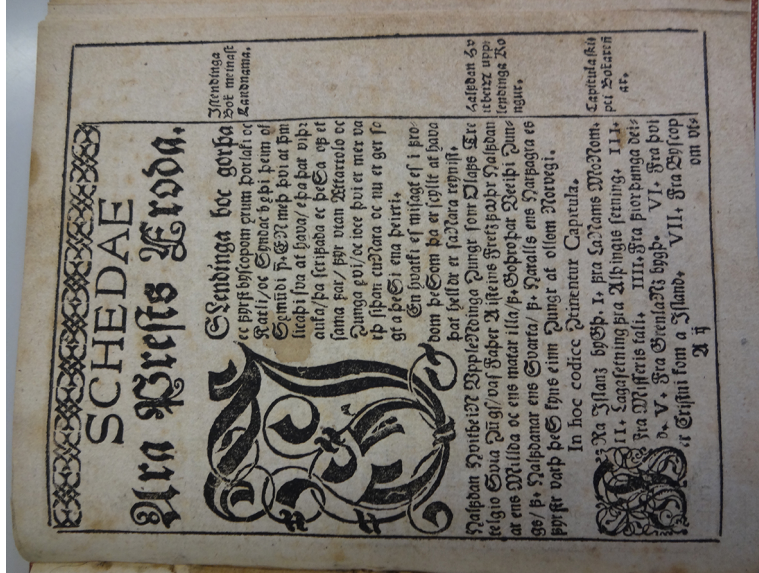 SCHEDAE
Ara Prests Froda.
SLendinga boc gorþa
ec fyrst byscopom orum Þorlaki oc
Katli/oc Syndac beþi þeim oc
Sæmūdi p. EN meþ þvi at þm
licaþi sva at hava/ eþa þar viþr
auka/ þa scrifaða ec þeSa of et
sama far/ fyr utan Attartolo oc
Nunga ævi/ oc ioec þvi er mer va
rþ siþan cuNara oc nu er ger so
gt a þeSi ena heirri.
En hvatki es misagt es i fro-
dom þeSom þa er scyllt at hava
þat helldr er saNara reynist.
Halfdan Hvitbein UppleNdinga Nungr son Olafs Tre
telgio Svia Nūgs/ vas faþer Aisteins Fretz faþþr Halfdan
ar ens Millda oc ens matar illa/ f. Goþroþar Veiþi Nun-
gs/ f. Halfdanar ens Svarta/ f. Haralls ens Harfagra es
fyrstr varþ þeS kyns einn Nungr at ollom Norvegi.
In hoc codice continentur Capitula.
FRa Islanz byGþ. I. fra LaNams MoNom.
II. Lagasetning fra Alþingis setning. III.
Fra Misseris tali. IIII. Fra fiorþunga dei-
ð. V. Fra GrenlaNz bygþ. VI. Fra þvi
er Cristni kom a Island. VII. Fra Byscop
om ut-
A ij
Islendinga
Bok meinast
Landnama.
Halfdan Hv
itbeirr upp
lendinga Ko
ngur.
Capitulaski-
pti Bokareñ
ar.